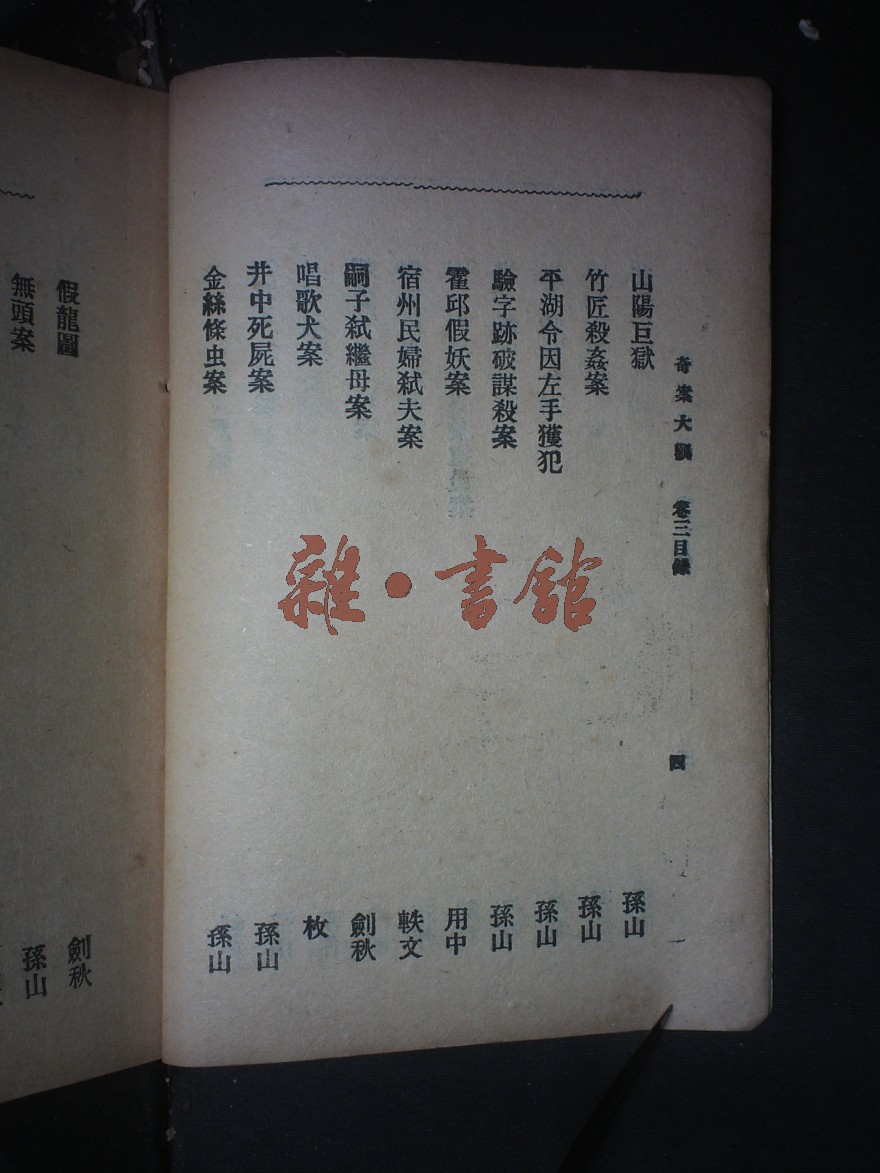 奇案大觀　卷三目錄　四
山陽巨獄　孫山
竹匠殺姦案　孫山
平湖令因左手獲犯　孫山
驗字跡破謀殺案　孫山
霍邱假妖案　用中
宿州民婦弑夫案　軼文
嗣子弑繼母案　劍秋
唱歌犬案　枚
井中死屍案　孫山
金絲條虫案　孫山
假龍圖　劍秋
無頭案　孫山
雜·書館